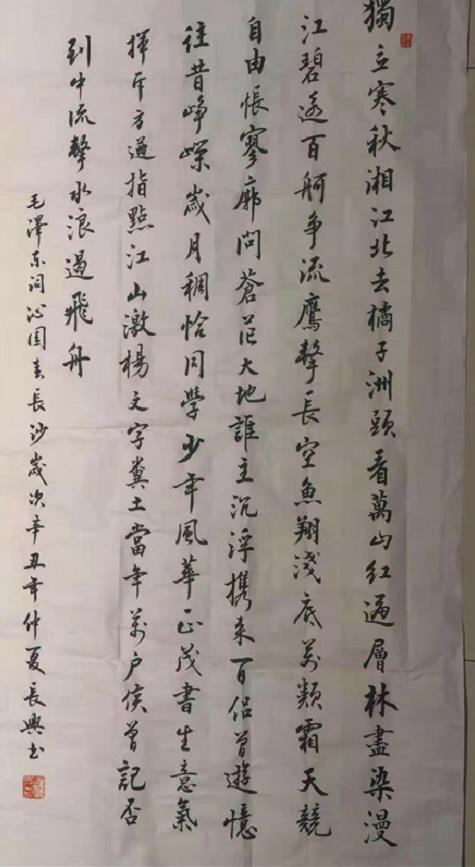 獨立寒秋湘江北去橘子洲頭看萬山紅遍層林盡染漫
江碧透百舸争流鷹擊長空魚翔淺底萬類霜天競
自由悵寥廓問蒼茫大地誰主沉浮携来百侣曾遊憶
往昔崢嶸歲月稠恰同學少年風華正茂書生意氣
揮斥方遒指點江山激楊文字糞土當年萬户侯曾記否
到中流擊水浪遏飛舟
毛澤东词沁园春長沙歲次辛丑年仲夏長興书